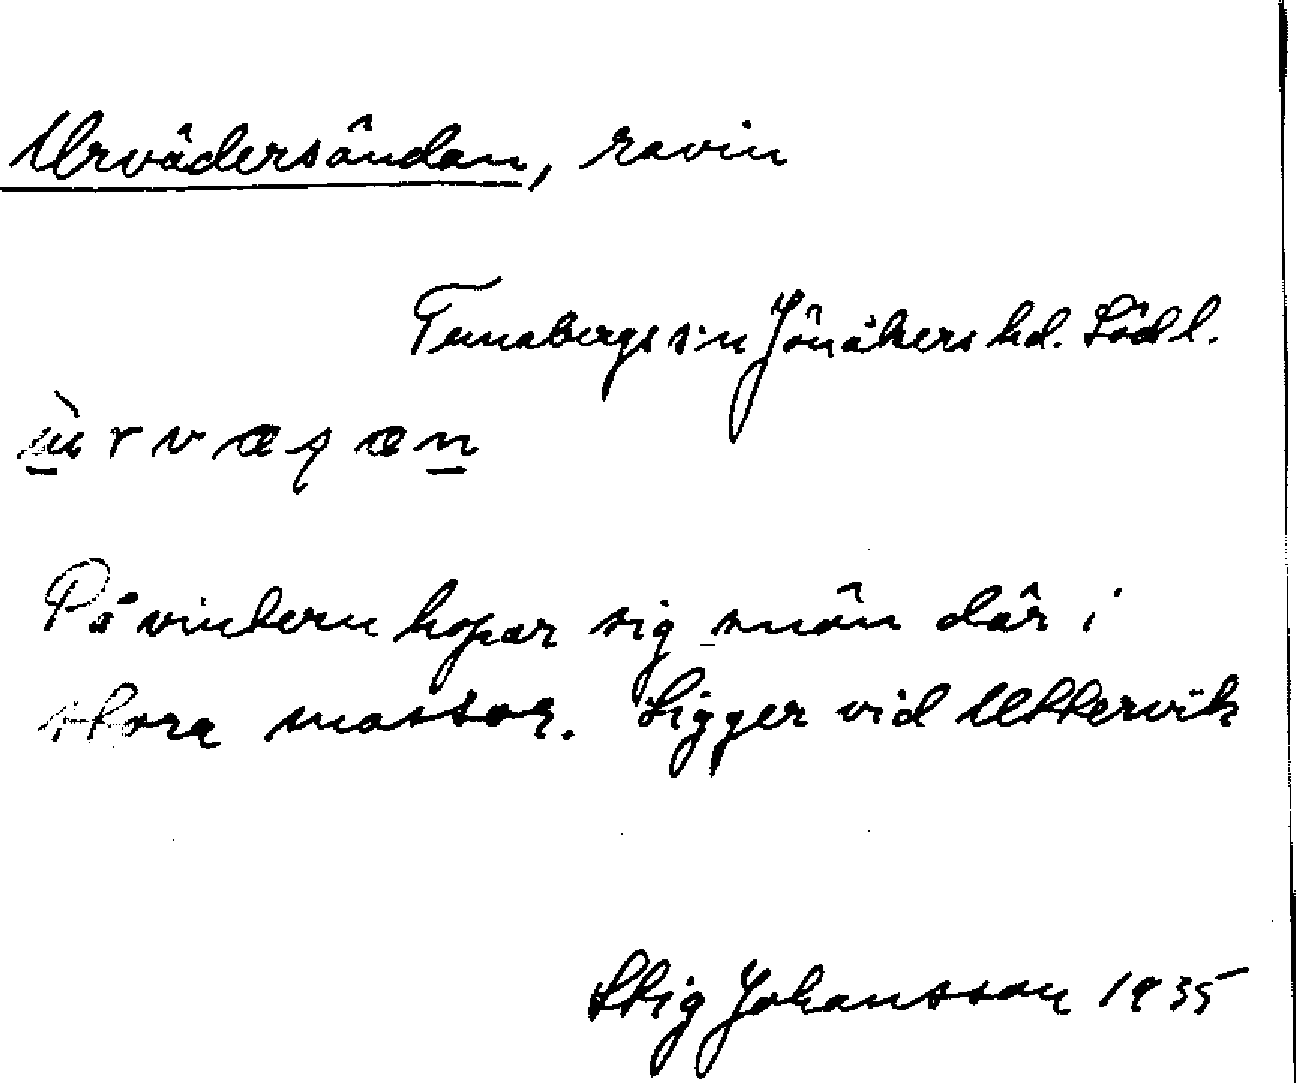 Urvädersändan, ravin
Tunabergs s:n Jönåkers hd. Södl.
På vintern hopar sig snön där i
stora massor. Ligger vid Uttervik
Stig Johansson 1935